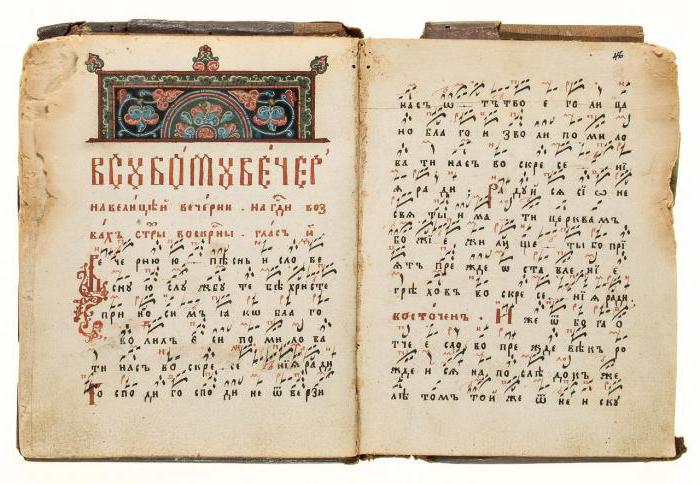 В СУБѠТУ ВЕЧЕР
на велицѣй вечерни . на гди воз
вахъ стры воскрны . гласъ и
Ве че рнюю пѣснь и сло ве
сну ю слу жбу те бѣ христе
при но си мъ ꙗ кѡ бла го
во лилъ е си по ми ло ва
ти насъ во скре се ни ѧ ради
Го спо ди го спо ди не ѿ ве рзи
46
насъ ѿ тъ тво е го ли ца
но бла го и зво ли по ми ло
ва ти насъ во скре се ні
ѧ ра ди Ра дуй сѧ сі ѡ не
свѧ ты и ма ти церквамъ
бо жі е жи ли ще ты бо прі
ѧтъ пре жде ѡ ста вле ні е
грѣ хо въ во скре се ни ѧ ради
восточен . И же ѿ бо га о
тче е сло во пре жде вѣкъ ро
жде и сѧ на по слѣ докъ же
лѣ томъ той же ѿ не и ску